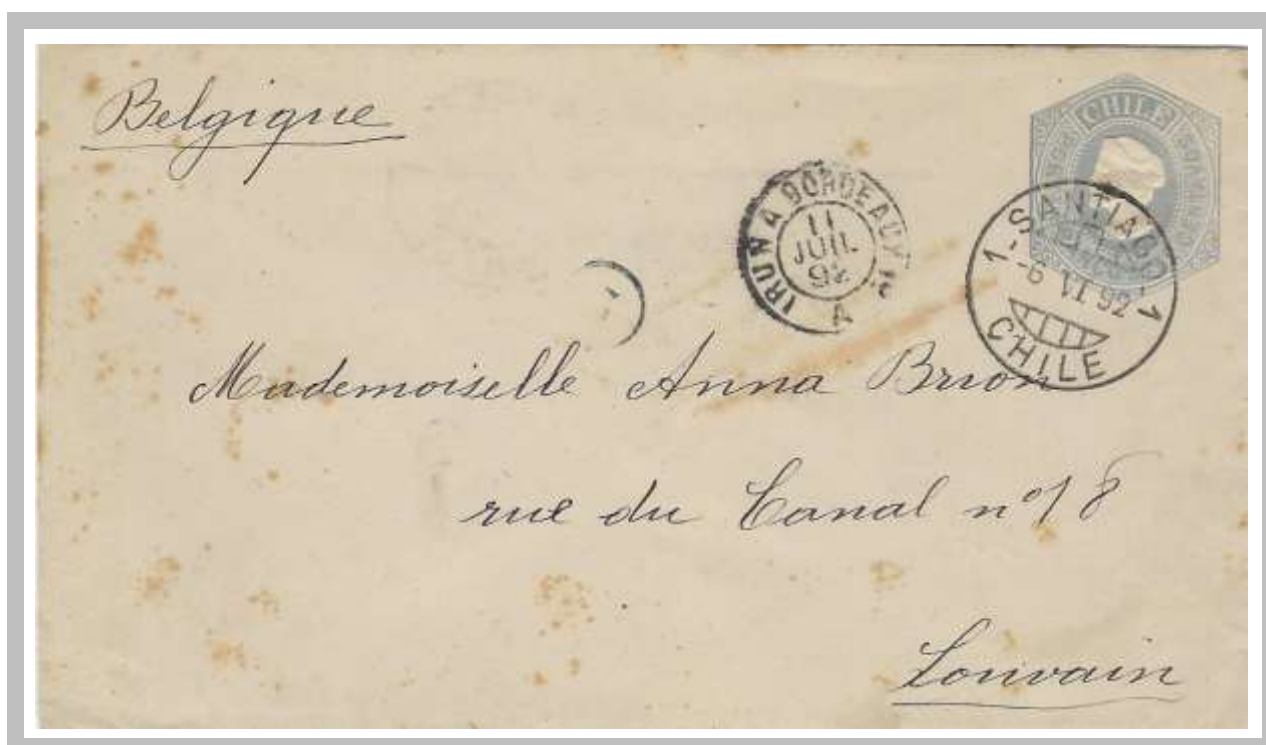 Belgique
CHILE
IRUN A BORDEAUX
11
JUIL
92
A
1-SANTIAGO-1
-6 VI 92
CHILE
Mademoiselle Anna Brion
rue du Canal nº18
Louvain